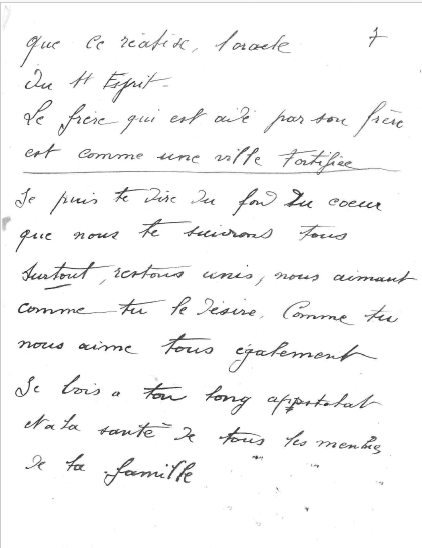 que ce réalise, l'oracle 7
Du St Esprit -
Le frère qui est aidé par son frère
est comme une ville fortifiée
Je puis te dire du fond du coeur
que nous te suivrons tous
surtout, restons unis, nous aimant
comme tu le désire, Comme tu
nous aime tous également
Je bois a ton long appstolat
et a la santé de tous les membres
de ta famille